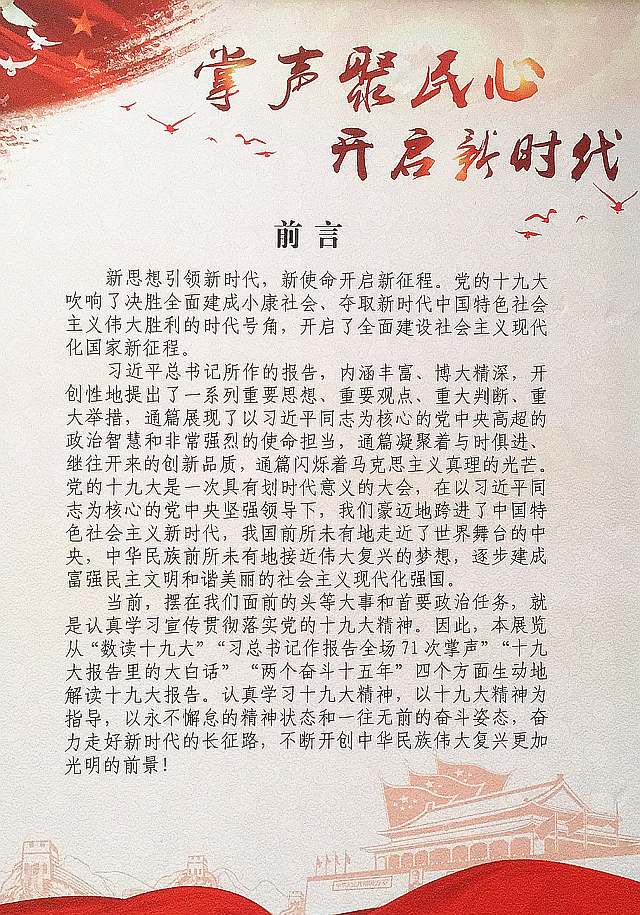 掌声聚民心
开启新时代
前言
新思想引领新时代，新使命开启新征程。党的十九大
吹响了决胜全面建成小康社会、夺取新时代中国特色社会
主义伟大胜利的时代号角，开启了全面建设社会主义现代
化国家新征程。
习近平总书记所作的报告，内涵丰富、博大精深，开
创性地提出了一系列重要思想、重要观点、重大判断、重
大举措，通篇展现了以习近平同志为核心的党中央高超的
政治智慧和非常强烈的使命担当，通篇凝聚着与时俱进、
继往开来的创新品质，通篇闪烁着马克思主义真理的光芒。
党的十九大是一次具有划时代意义的大会，在以习近平同
志为核心的党中央坚强领导下，我们豪迈地跨进了中国特
色社会主义新时代，我国前所未有地走近了世界舞台的中
央，中华民族前所未有地接近伟大复兴的梦想，逐步建成
富强民主文明和谐美丽的社会主义现代化强国。
当前，摆在我们面前的头等大事和首要政治任务，就
是认真学习宣传贯彻落实党的十九大精神。因此，本展览
从“数读十九大”“习总书记作报告全场71次掌声”“十九
大报告里的大白话”“两个奋斗十五年”四个方面生动地
解读十九大报告。认真学习十九大精神，以十九大精神为
指导，以永不懈怠的精神状态和一往无前的奋斗姿态，奋
力走好新时代的长征路，不断开创中华民族伟大复兴更加
光明的前景！